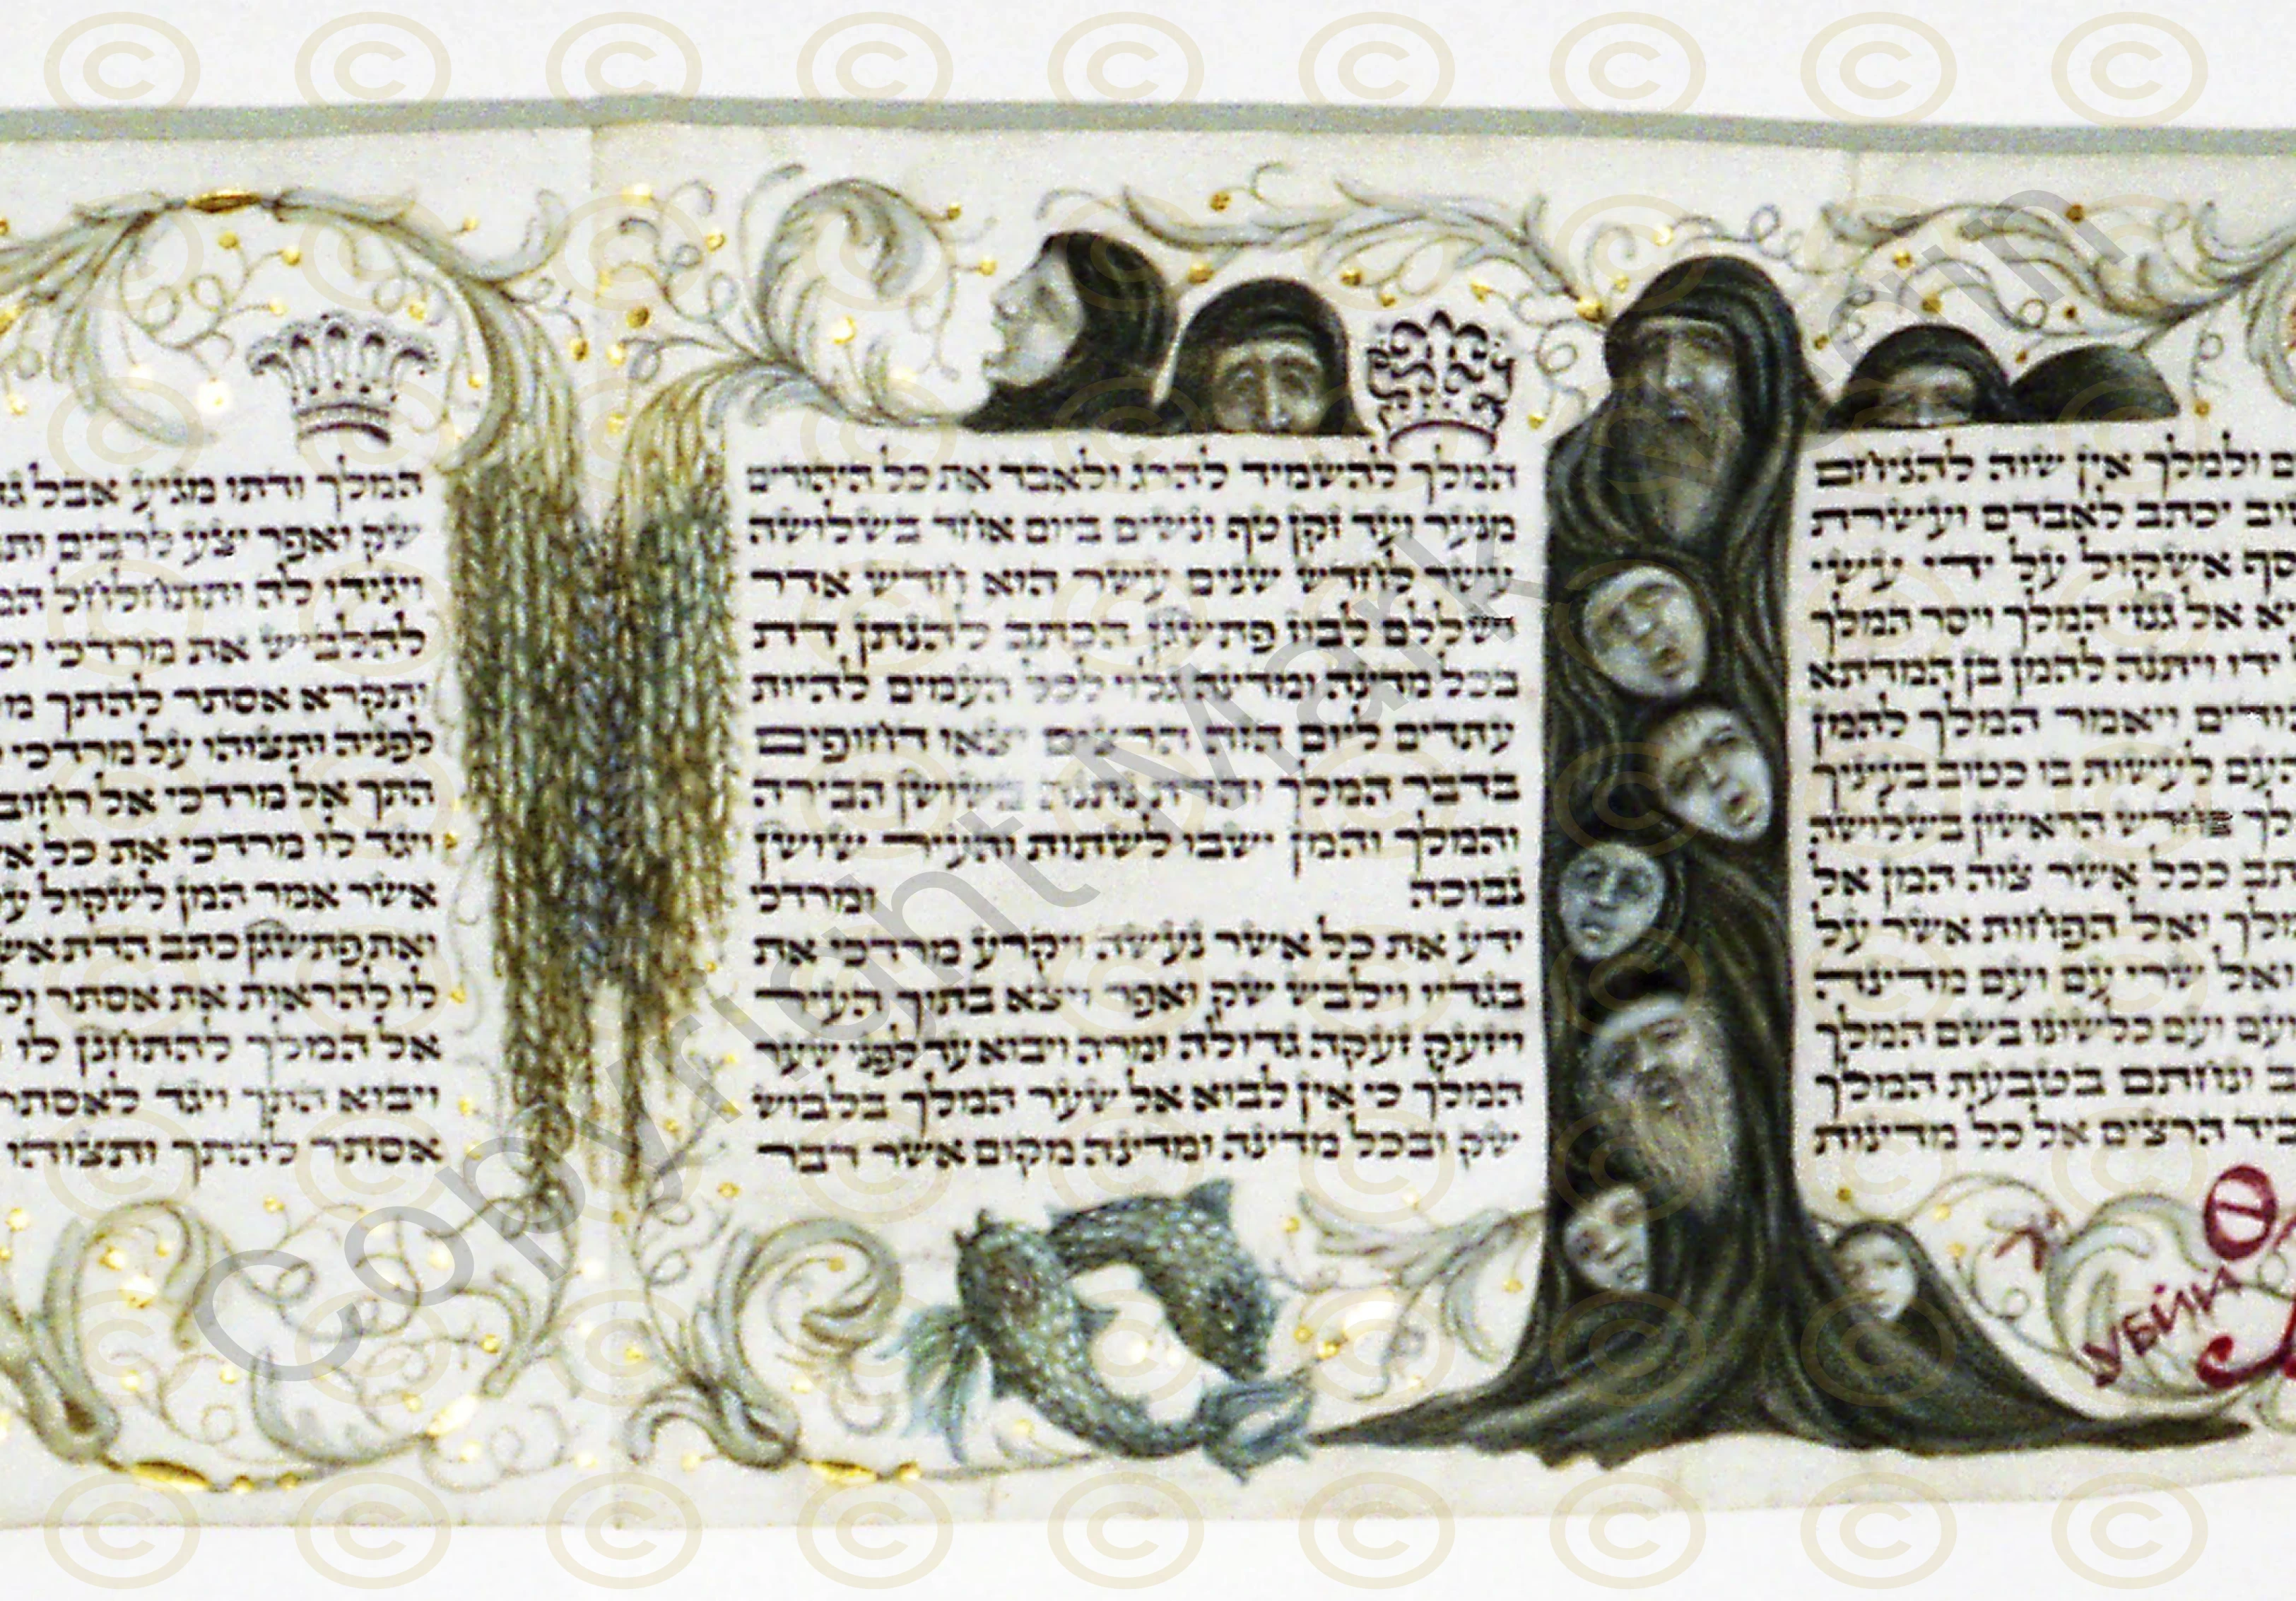 ולמלך אין שוה להניחם
יכתב לאבדם ועשרת
אשקול על ידי עשי
אל גנזי המלך ויסר המלך
ידו ויתנה להמן בן המדתא
ויאמר המלך להמן
העם לעשות בו כטוב בעיניך
הראשון בשלושה
ככל אשר צוה המן אל
ואל הפחות אשר על
ואל שרי עם ועם מדינה
ועם כלשונו בשם המלך
ונחתם בטבעת המלך
הרצים אל כל מדינות
המלך להשמיד להרג ולאבד את כל היהודים
מנער ועד זקן טף ונשים ביום אחד בשלושה
עשר לחדש שנים עשר הוא חדש אדר
ושללם לבוז פתשגן הכתב להנתן דת
בכל מדינה ומדינה גלוי לכל העמים להיות
עתדים ליום הזה הרצים יצאו דחופים
בדבר המלך והדת נתנה בשושן הבירה
והמלך והמן ישבו לשתות והעיר שושן
נבוכה ומרדכי
ידע את כל אשר נעשה ויקרע מרדכי את
בגדיו וילבש שק ואפר ויצא בתוך העיר
ויזעק זעקה גדולה ומרה ויבוא עד לפני שער
המלך כי אין לבוא אל שער המלך בלבוש
שק ובכל מדינה ומדינה מקום אשר דבר
המלך ודתו מגיע אבל
שק ואפר יצע לרבים
ויגידו לה ותתחלחל
להלביש את מרדכי
ותקרא אסתר להתך
לפניה ותצוהו על מרדכי
התך אל מרדכי אל רחוב
ויגד לו מרדכי את כל
אשר אמר המן לשקול
ואת פתשגן כתב הדת
לו להראות את אסתר
אל המלך להתחנן לו
ויבוא התך ויגד לאסתר
אסתר להתך ותצוהו
Copyright Mark